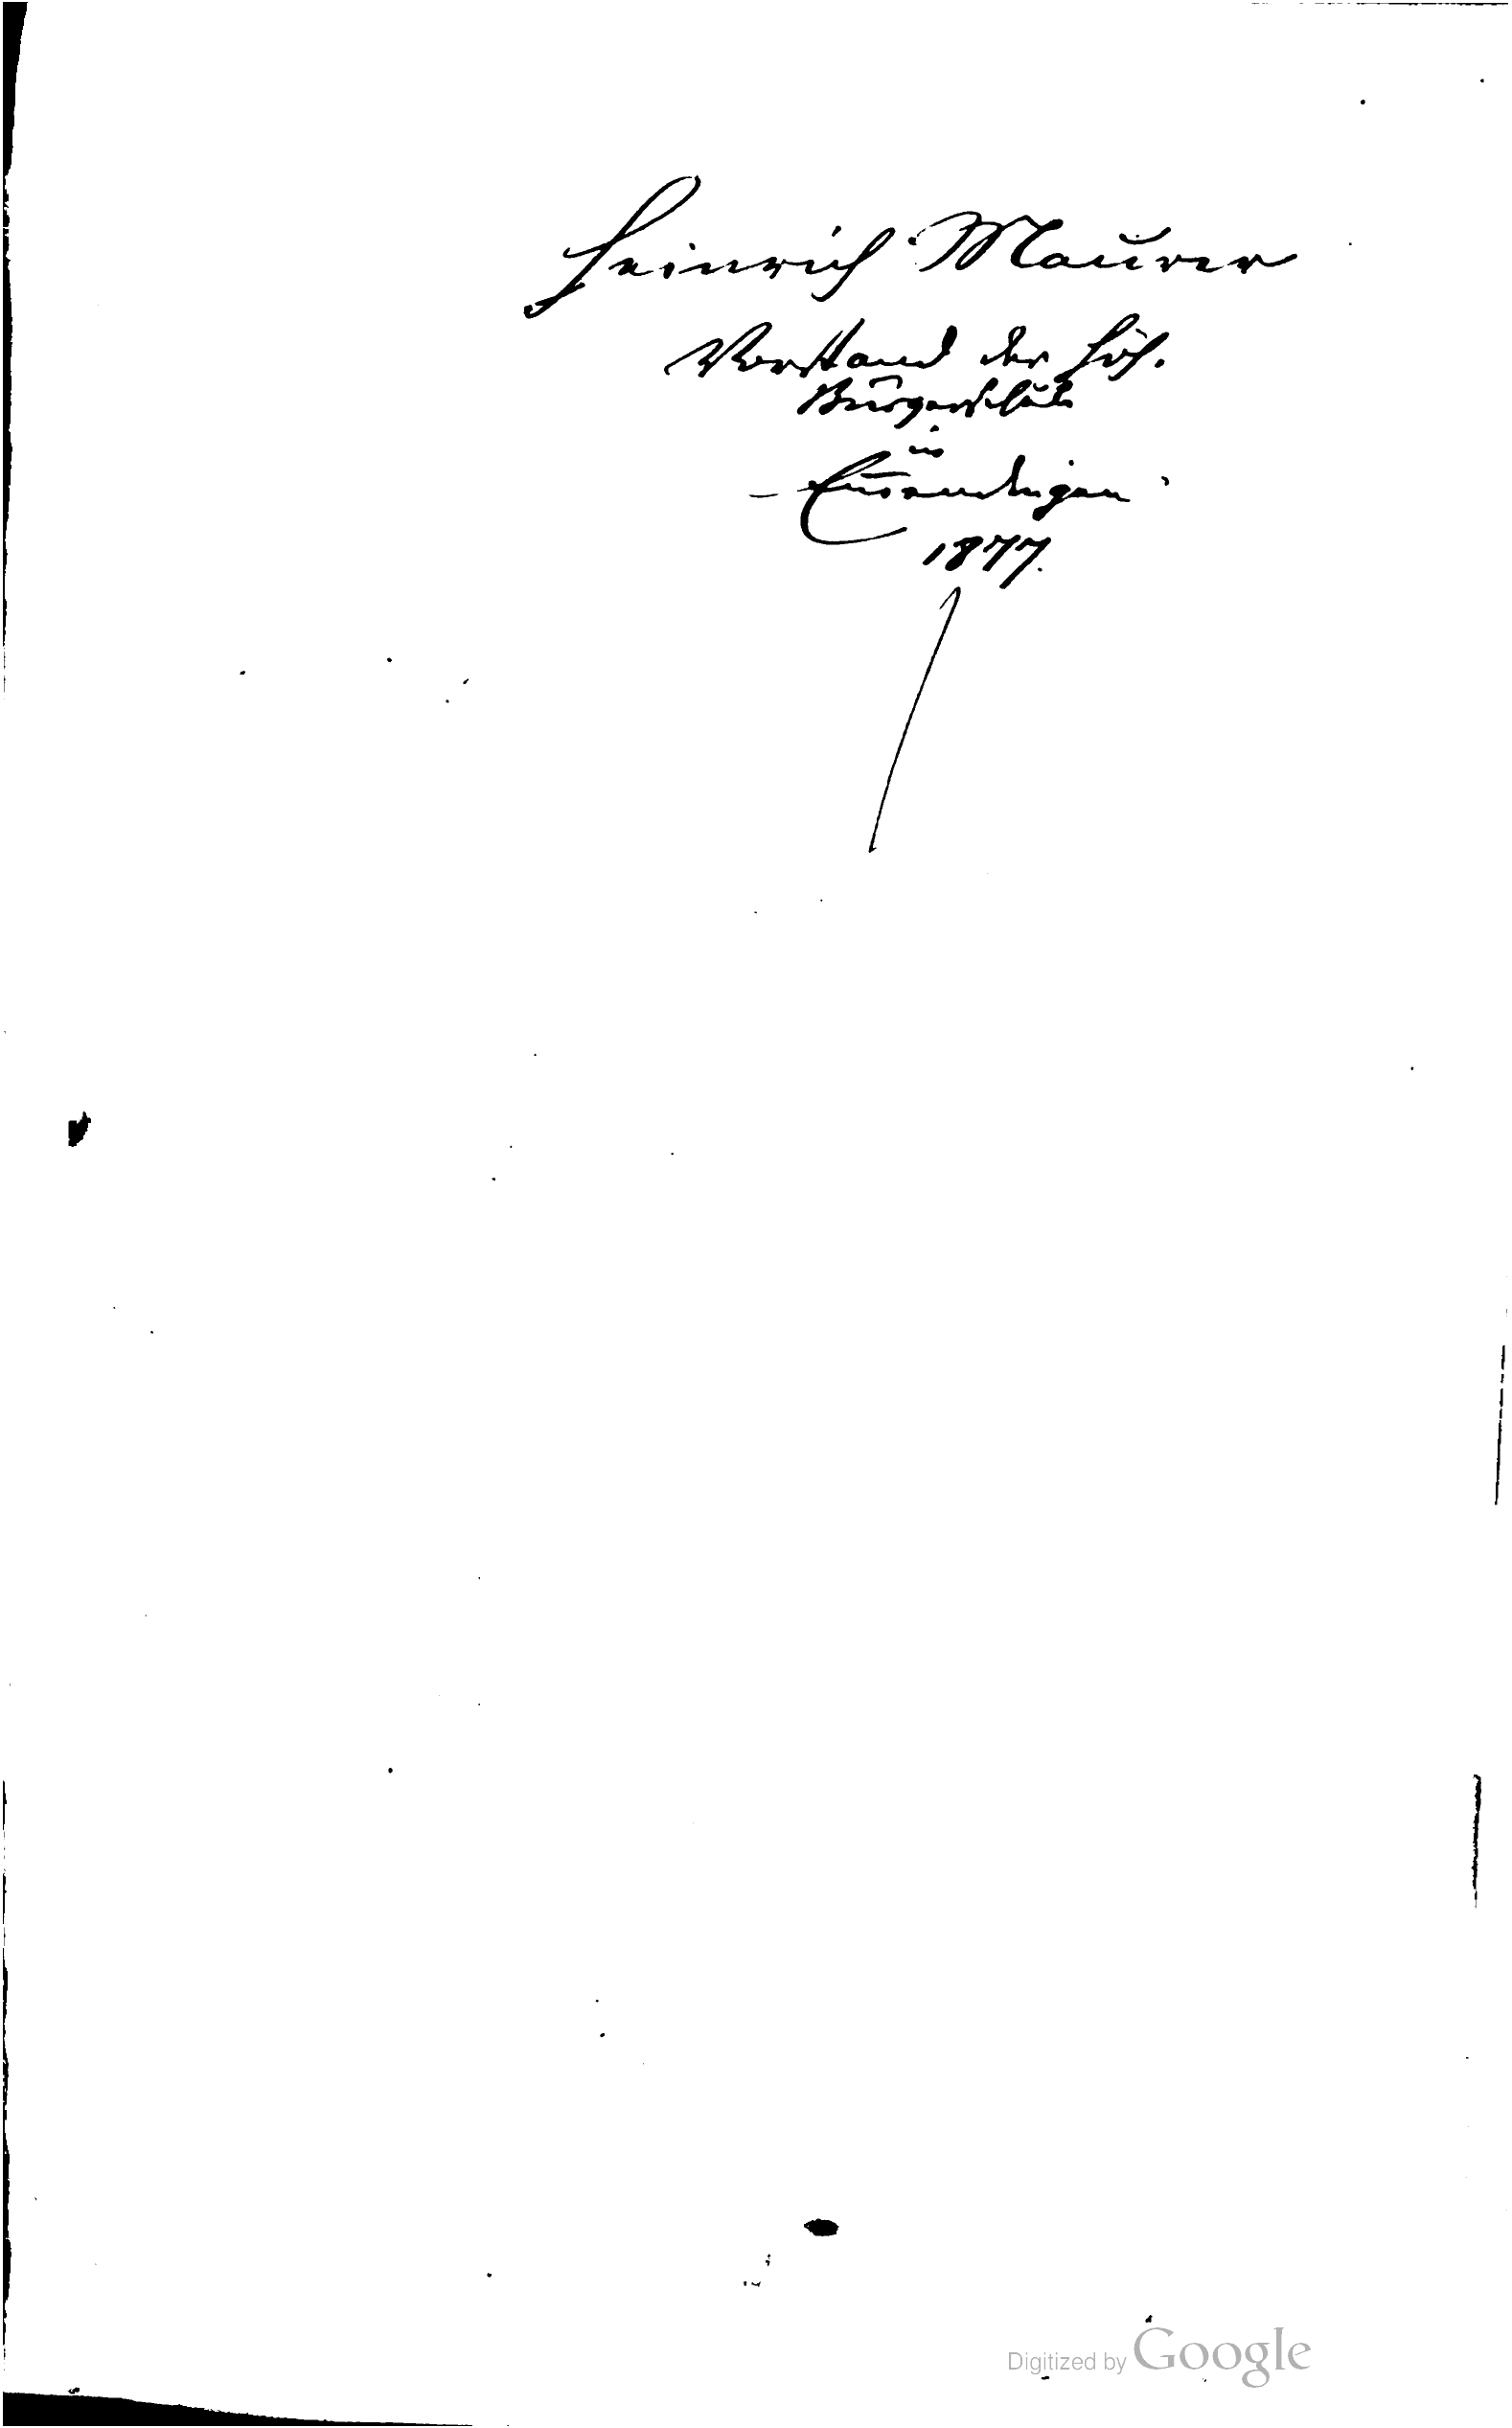 Heinrich Maurer
Vorstand der höh.
Bürgerschule
in
Emmendingen
1877.
Digitized by Google